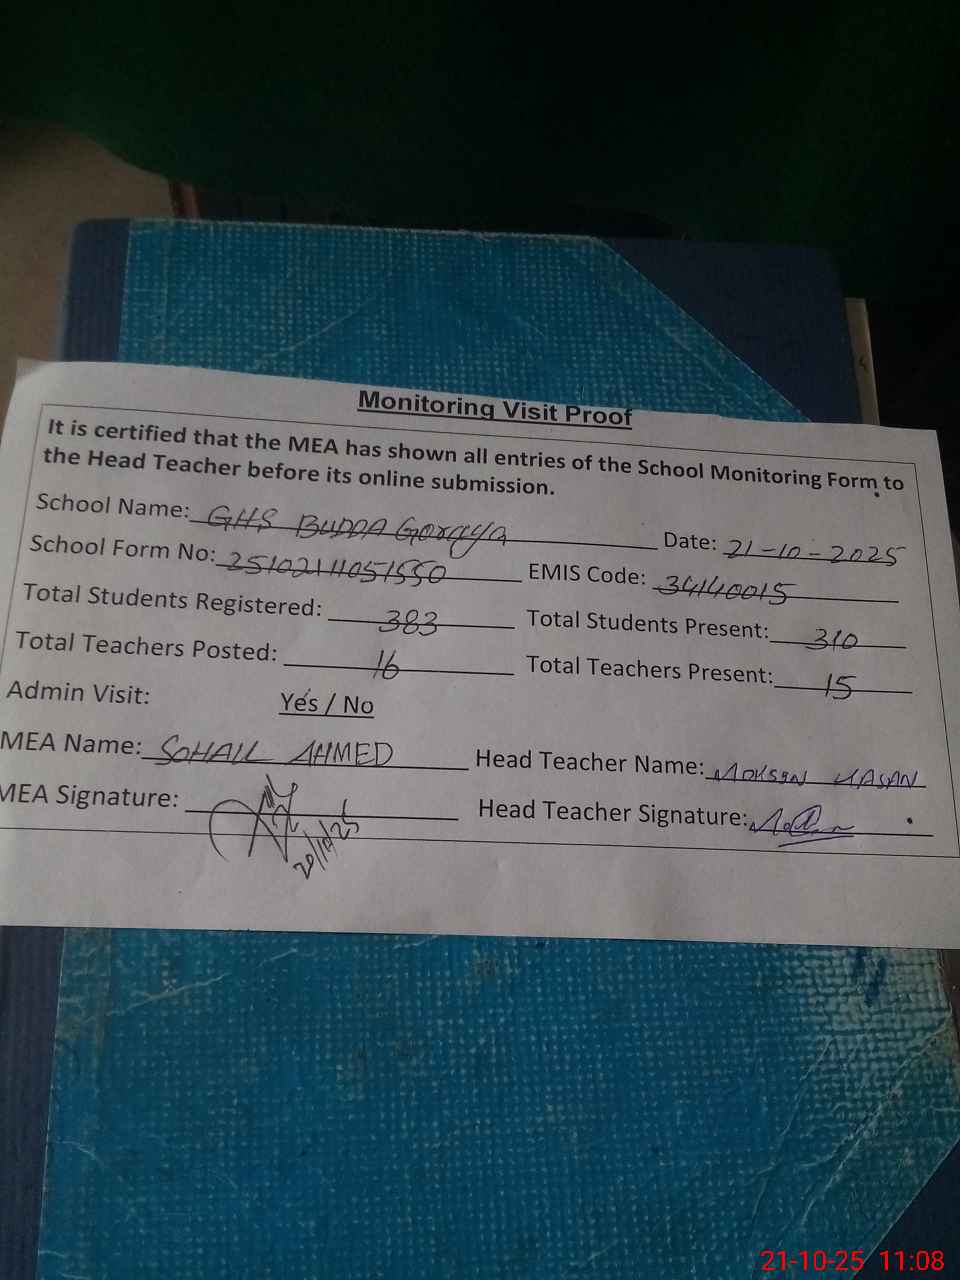 Monitoring Visit Proof
It is certified that the MEA has shown all entries of the School Monitoring Form to
the Head Teacher before its online submission.
School Name: GHS BUDDA Goraya Date: 21-10-2025
School Form No: 25102111051550 EMIS Code: 34140015
Total Students Registered: 383 Total Students Present: 310
Total Teachers Posted: 16 Total Teachers Present: 15
Admin Visit: Yes / No
MEA Name: SOHAIL AHMED Head Teacher Name: MOHSEN HASAN
MEA Signature: Head Teacher Signature:
20/10/25
21-10-25 11:08